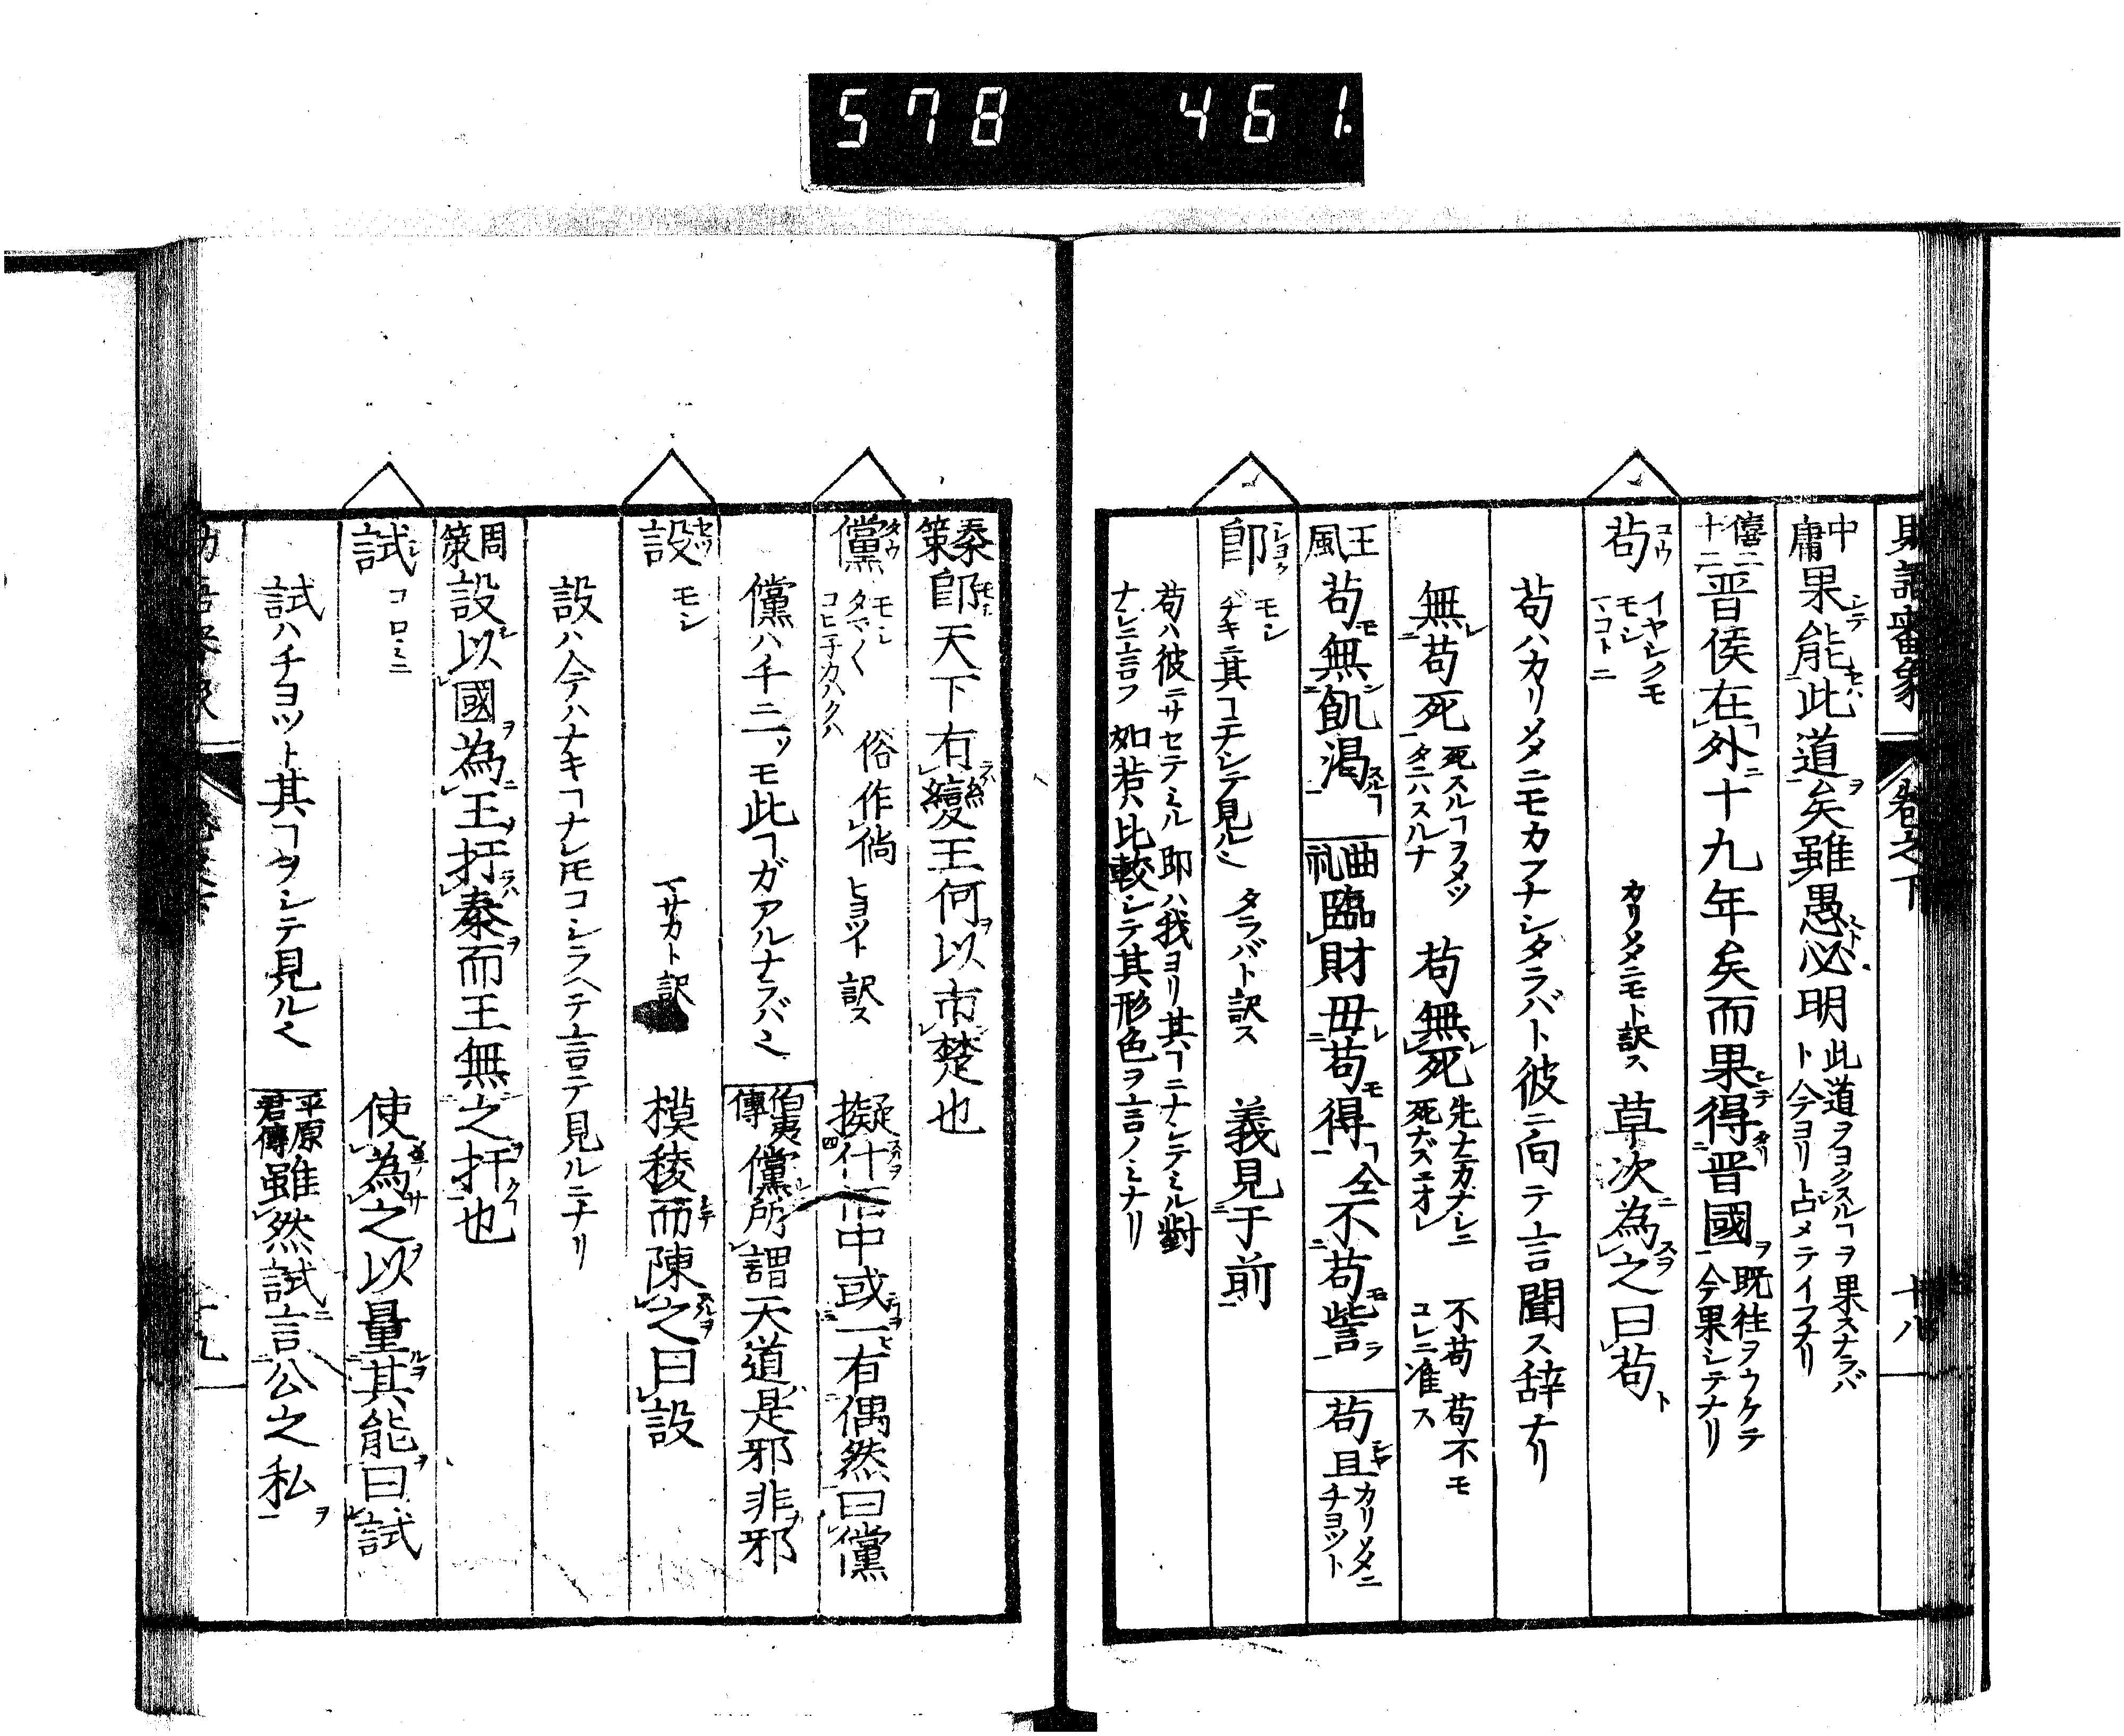 578 461.
助語審象 巻之下 十八
中庸 果能此道矣雖愚必明 此道ヲヨクスルヿヲ果スナラバト今ヨリ占メテイフナリ
僖二十二 晋侯在外十九年矣而果得晋國 既往ヲウケテ今果シテナリ
苟 コウ イヤシクモ モシ マコトニ カリソメタニモト訳ス 草次為之曰苟
苟ハカリソメタニモカフナシタラバト彼ニ向テ言聞ス辞ナリ
無苟死 死スルヿヲメッタニハスルナ 苟無死 先ナニカナシニ死ナズニオレ 不苟 苟不モコレニ准ス
王風 苟無飢渇 曲礼 臨財毋苟得 仝 不苟訾 苟且 カリソメニ チヨツト
即 シヨク モシ ヂキニ其ヿニナシテ見ル タラバト訳ス 義見于前
苟ハ彼ニサセテミル 即ハ我ヨリ其ヿニナシテミル對
ナシニ言フ 如若ハ比較シテ其形色ヲ言ノミナリ
秦策 即天下有變王何以市楚也
儻 タウ モシ タマ〱 コヒ子カハクハ 俗作倘 ヒヨツト訳ス 擬什伯中或一有偶然曰儻
儻ハ千ニ一ツモ此ヿガアルナラバ 伯夷傳 儻所謂天道是邪非邪
設 セツ モシ マサカト訳 模稜而陳之曰設
設ハ今テハナキヿナレ𪜈コシラヘテ言テ見ルニナリ
周策 設以國為王扞秦而王無之扞也
試 シ コロミニ 使為之以量其能曰試
試ハチヨツト其ヿヲシテ見ル 平原君傳 雖然試言公之私